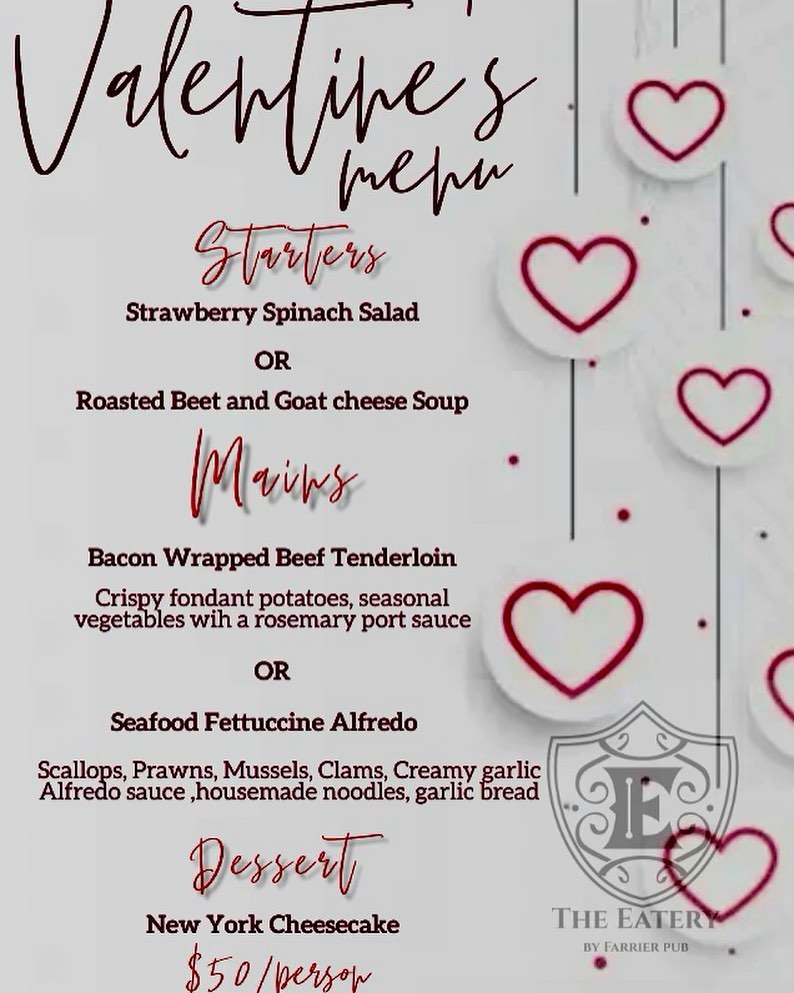 Valentine's
menu
Starters
Strawberry Spinach Salad
OR
Roasted Beet and Goat cheese Soup
Mains
Bacon Wrapped Beef Tenderloin
Crispy fondant potatoes, seasonal
vegetables wih a rosemary port sauce
OR
Seafood Fettuccine Alfredo
Scallops, Prawns, Mussels, Clams, Creamy garlic
Alfredo sauce ,housemade noodles, garlic bread
Dessert
New York Cheesecake
$50/person
E
THE EATERY
BY FARRIER PUB